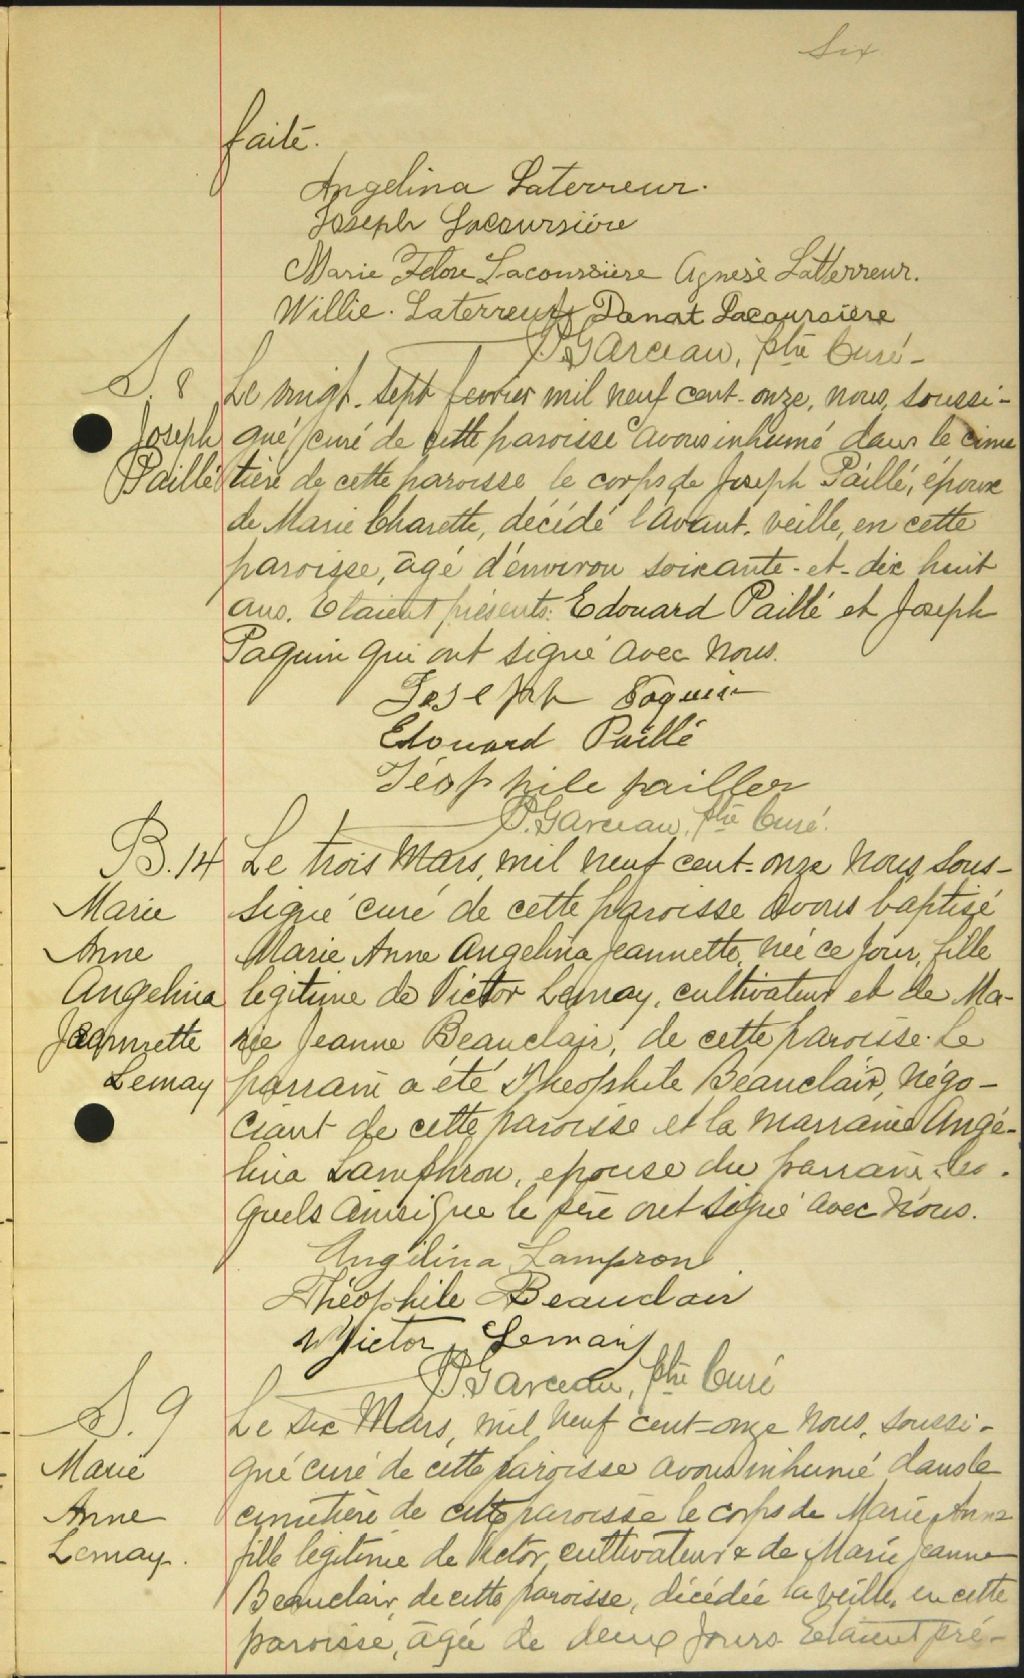 Six
faite.
Angelina Laterreur.
Joseph Lacoursière
Marie Flore Lacoursière Agnesè Latterreur.
Willie. Laterreur Donat Lacoursière
P. Garceau, ptre Curé-
S. 8
Joseph
Paillé
Le vingt-sept fevrier mil neuf cent-onze, nous, soussi-
gné, curé de cette paroisse avons inhumé dans le cime
tière de cette paroisse le corps de Joseph Paillé, époux
de Marie Charette, décédé l'avant-veille, en cette
paroisse, âgé d'environ soixante-et-dix huit
ans. Etaient présents: Edouard Paillé et Joseph
Paquin qui ont signé avec nous.
Joseph Paquin
Edouard Paillé
Téophile pailler
P. Garceau, ptre Curé.
B. 14
Marie
Anne
Angelina
Jeannette
Lemay
Le trois Mars, mil neuf cent-onze nous, sous-
signé curé de cette paroisse avons baptisé
Marie Anne Angelina Jeannette, née ce jour, fille
legitime de Victor Lemay, cultivateur et de Ma-
rie Jeanne Beauclair, de cette paroisse. Le
parrain a été Théophile Beauclair, négo-
ciant de cette paroisse et la marraine Angé-
lina Lamphron, epouse du parrain, les-
quels ainsi que le père ont signé avec nous.
Angélina Lampron
Théophile Beauclair
Victor Lemay
P. Garceau, ptre Curé
S. 9
Marie
Anne
Lemay.
Le six Mars, mil neuf cent-onze nous, soussi-
gné curé de cette paroisse avons inhumé dans le
cimetière de cette paroisse le corps de Marie Anne
fille legitime de Victor, cultivateur & de Marie Jeanne
Beauclair, de cette paroisse, décédée la veille, en cette
paroisse, âgée de deux jours. Etaient pré-